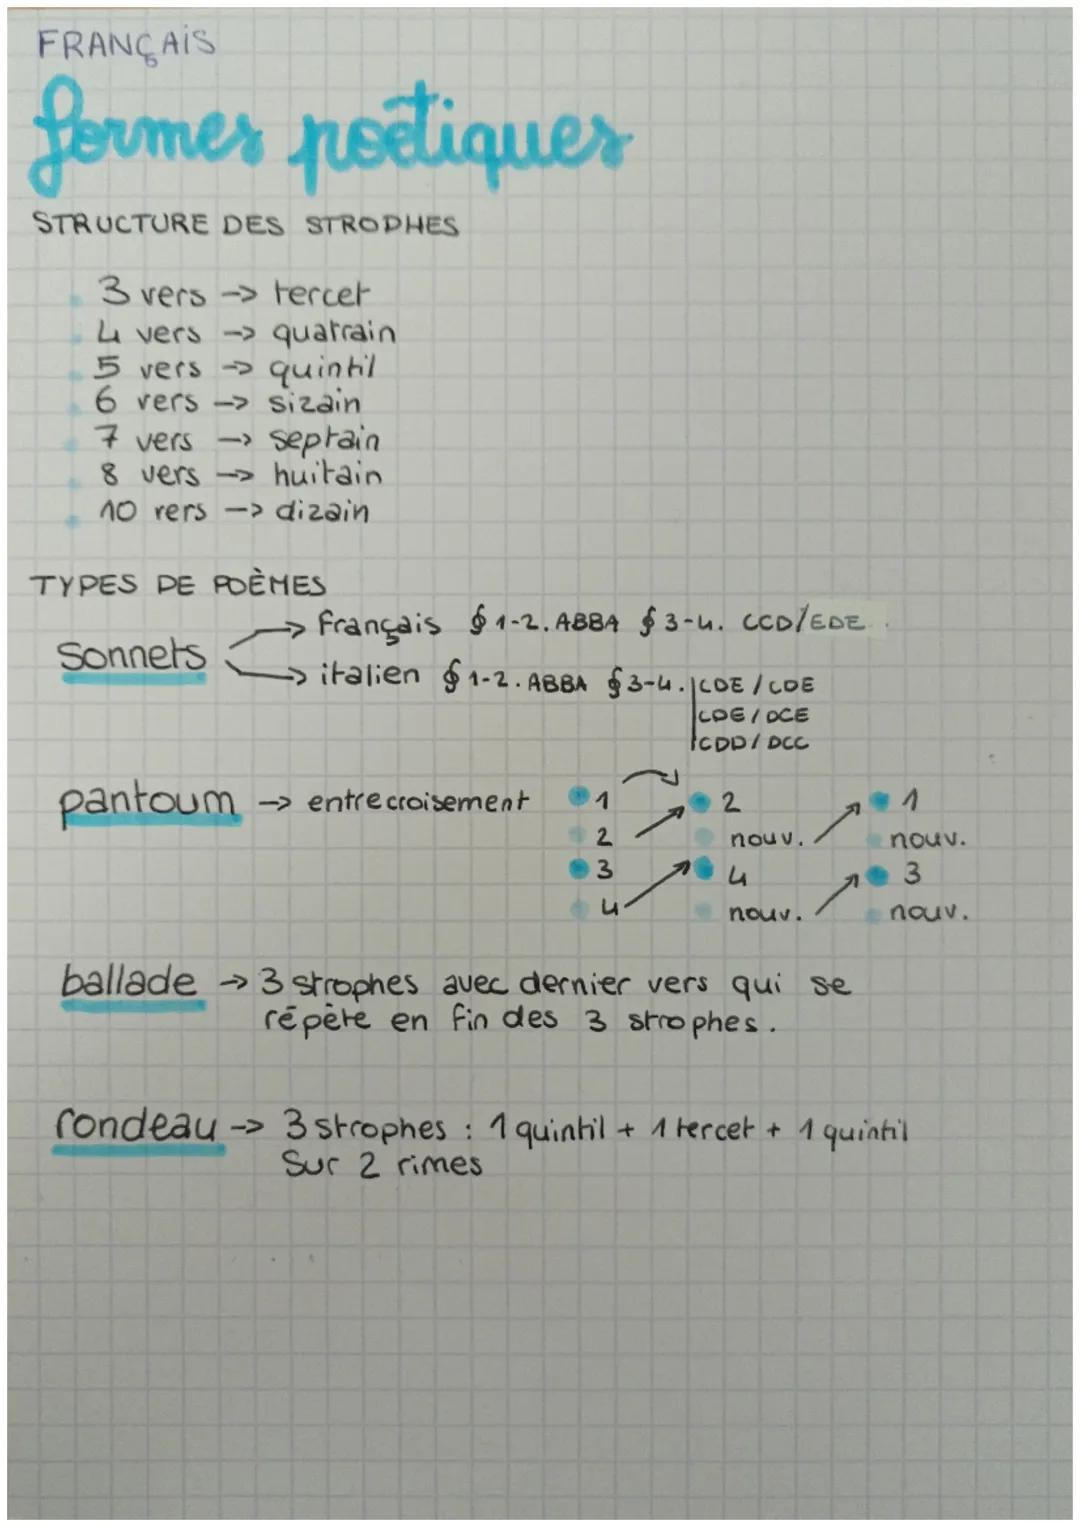 FRANÇAIS
formes poétiques
STRUCTURE DES STROPHES
3 vers -> tercet
4 vers -> quatrain
5 vers -> quintil
6 vers -> sizain
7 vers -> septain
8 vers -> huitain
10 vers -> dizain
TYPES DE POÈMES
Sonnets
-> français § 1-2. ABBA § 3-4. CCD/EDE
-> italien § 1-2. ABBA § 3-4. | CDE / CDE
CDE / DCE
CDD / DCC
pantoum -> entrecroisement
1 2 1
2 nouv. nouv.
3 4 3
4 nouv. nouv.
ballade -> 3 strophes avec dernier vers qui se
répète en fin des 3 strophes.
rondeau -> 3 strophes : 1 quintil + 1 tercet + 1 quintil
Sur 2 rimes